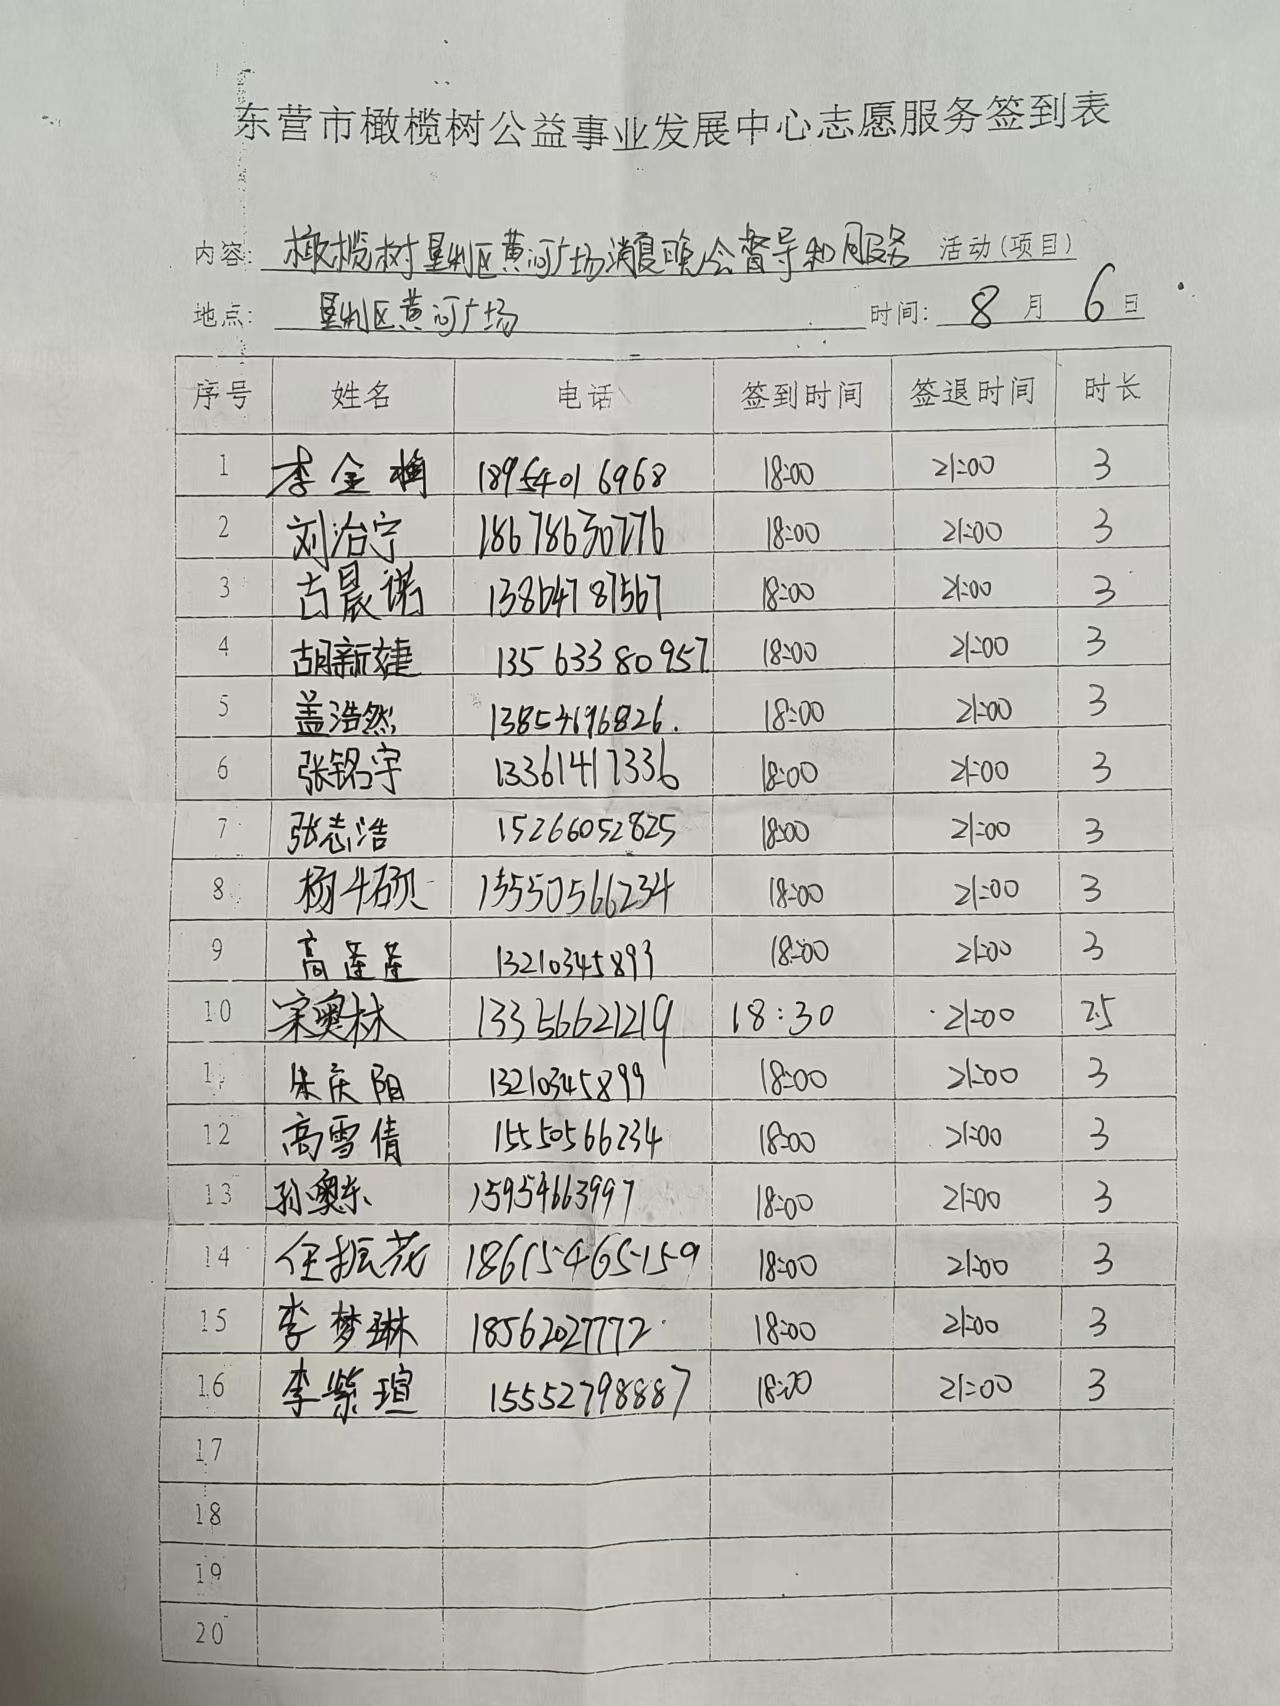 东营市橄榄树公益事业发展中心志愿服务签到表
内容: 橄榄树垦利区黄河广场消夏晚会督导和服务 活动(项目)
地点: 垦利区黄河广场 时间: 8 月 6 日
序号 姓名 电话 签到时间 签退时间 时长
1 李金梅 18954016968 18:00 21:00 3
2 刘治宁 18678630776 18:00 21:00 3
3 古晨诺 13864787567 18:00 21:00 3
4 胡新婕 13563380957 18:00 21:00 3
5 盖浩然 13854696826. 18:00 21:00 3
6 张铭宇 13361417336 18:00 21:00 3
7 张志浩 15266052825 18:00 21:00 3
8 杨斗硕 15550566234 18:00 21:00 3
9 高莲莲 13210345899 18:00 21:00 3
10 宋奥林 13356621219 18:30 21:00 2.5
1 朱庆阳 13210345899 18:00 21:00 3
12 高雪倩 15550566234 18:00 21:00 3
13 孙奥东 15954663997 18:00 21:00 3
14 任振花 18615465159 18:00 21:00 3
15 李梦琳 18562027772 18:00 21:00 3
16 李紫瑄 15552798887 18:00 21:00 3
17
18
19
20